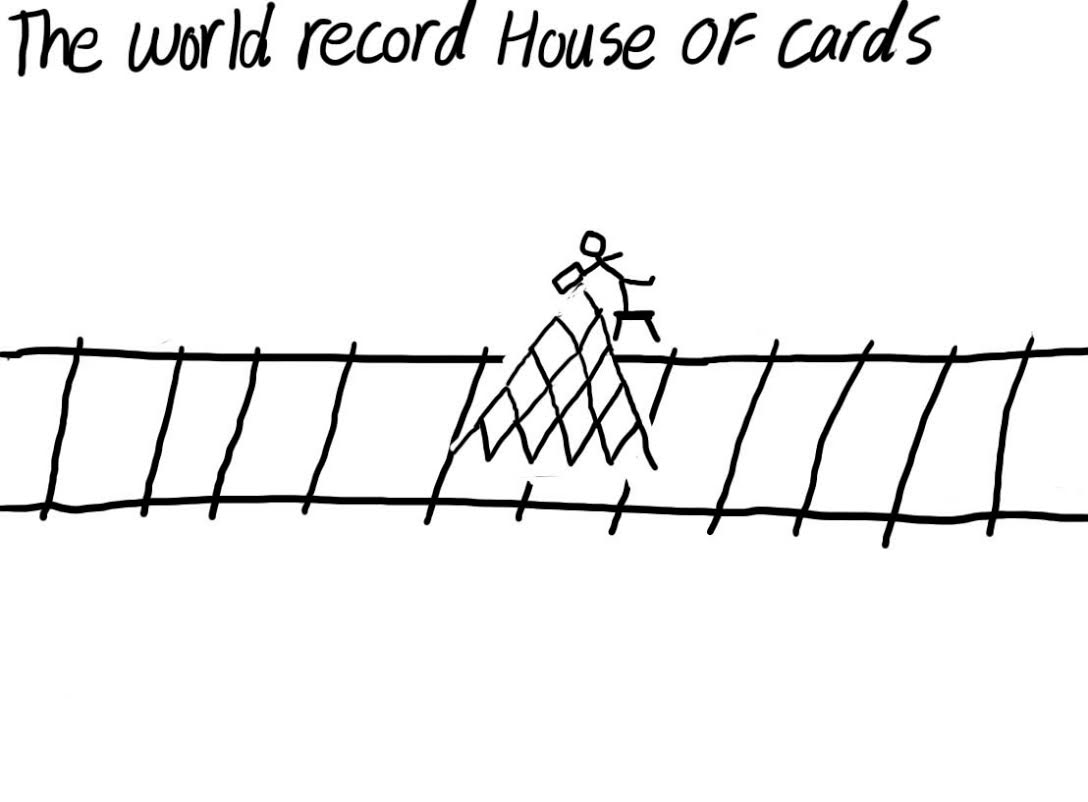 The world record House of cards